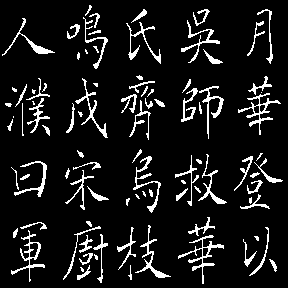 月華登以
吳師救華
氏齊烏枝
鳴戍宋廚
人濮曰軍